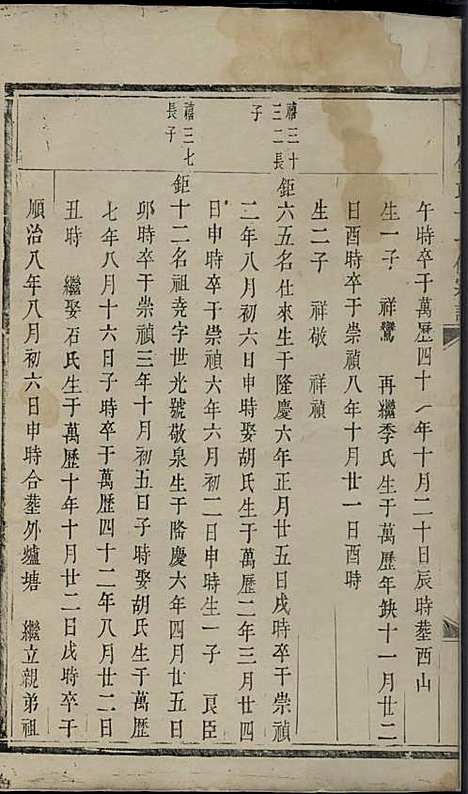 午時卒于萬歷四十一年十月二十日辰時塟西山
生一子 祥鸞 再繼季氏生于萬歷年缺十一月廿二
日酉時卒于崇禎八年十月廿一日酉時
生二子 祥敬 祥禎
禧三十三二長子
鉅六五名仕來生于隆慶六年正月廿五日戌時卒于崇禎
二年八月初六日申時娶胡氏生于萬歷二年三月廿四
日申時卒于崇禎六年六月初二日申時生一子 良臣
禧三七長子
鉅十二名祖堯字世光號敬泉生于隆慶六年四月廿五日
卯時卒于崇禎三年十月初五日子時娶胡氏生于萬歷
七年八月十六日子時卒于萬歷四十二年八月廿二日
丑時 繼娶石氏生于萬歷十年十月廿二日戌時卒于
順治八年八月初六日申時合塟外爐塘 繼立親弟祖